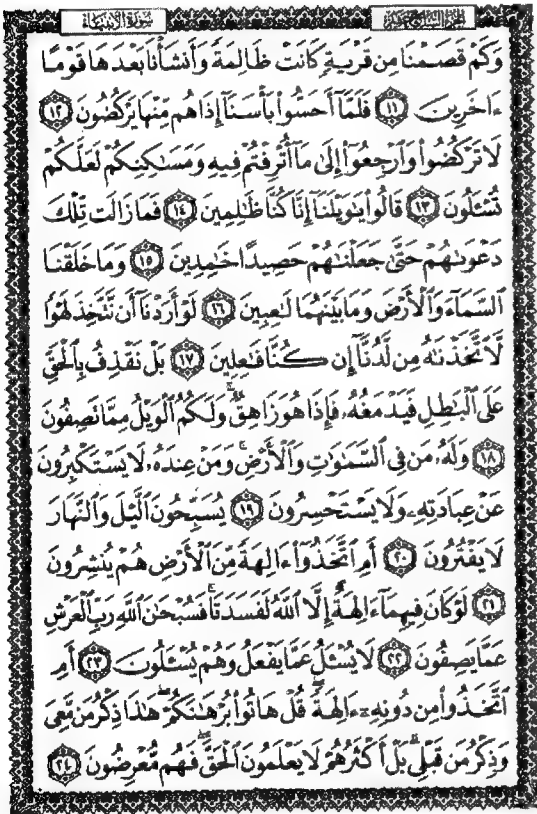 سُورَةُ الأَنبِيَاءِ
الجُزْءُ السَّابِعَ عَشَرَ
وَكَمْ قَصَمْنَا مِن قَرْيَةٍ كَانَتْ ظَالِمَةً وَأَنشَأْنَا بَعْدَهَا قَوْمًا
ءَاخَرِينَ ١١ فَلَمَّآ أَحَسُّوا۟ بَأْسَنَآ إِذَا هُم مِّنْهَا يَرْكُضُونَ ١٢
لَا تَرْكُضُوا۟ وَٱرْجِعُوٓا۟ إِلَىٰ مَآ أُتْرِفْتُمْ فِيهِ وَمَسَـٰكِنِكُمْ لَعَلَّكُمْ
تُسْـَٔلُونَ ١٣ قَالُوا۟ يَـٰوَيْلَنَآ إِنَّا كُنَّا ظَـٰلِمِينَ ١٤ فَمَا زَالَت تِّلْكَ
دَعْوَىٰهُمْ حَتَّىٰ جَعَلْنَـٰهُمْ حَصِيدًا خَـٰمِدِينَ ١٥ وَمَا خَلَقْنَا
ٱلسَّمَآءَ وَٱلْأَرْضَ وَمَا بَيْنَهُمَا لَـٰعِبِينَ ١٦ لَوْ أَرَدْنَآ أَن نَّتَّخِذَ لَهْوًا
لَّٱتَّخَذْنَـٰهُ مِن لَّدُنَّآ إِن كُنَّا فَـٰعِلِينَ ١٧ بَلْ نَقْذِفُ بِٱلْحَقِّ
عَلَى ٱلْبَـٰطِلِ فَيَدْمَغُهُۥ فَإِذَا هُوَ زَاهِقٌ ۚ وَلَكُمُ ٱلْوَيْلُ مِمَّا تَصِفُونَ
١٨ وَلَهُۥ مَن فِى ٱلسَّمَـٰوَٰتِ وَٱلْأَرْضِ ۚ وَمَنْ عِندَهُۥ لَا يَسْتَكْبِرُونَ
عَنْ عِبَادَتِهِۦ وَلَا يَسْتَحْسِرُونَ ١٩ يُسَبِّحُونَ ٱلَّيْلَ وَٱلنَّهَارَ
لَا يَفْتُرُونَ ٢٠ أَمِ ٱتَّخَذُوٓا۟ ءَالِهَةً مِّنَ ٱلْأَرْضِ هُمْ يُنشِرُونَ
٢١ لَوْ كَانَ فِيهِمَآ ءَالِهَةٌ إِلَّا ٱللَّهُ لَفَسَدَتَا ۚ فَسُبْحَـٰنَ ٱللَّهِ رَبِّ ٱلْعَرْشِ
عَمَّا يَصِفُونَ ٢٢ لَا يُسْـَٔلُ عَمَّا يَفْعَلُ وَهُمْ يُسْـَٔلُونَ ٢٣ أَمِ
ٱتَّخَذُوا۟ مِن دُونِهِۦٓ ءَالِهَةً ۖ قُلْ هَاتُوا۟ بُرْهَـٰنَكُمْ ۖ هَـٰذَا ذِكْرُ مَن مَّعِىَ
وَذِكْرُ مَن قَبْلِى ۗ بَلْ أَكْثَرُهُمْ لَا يَعْلَمُونَ ٱلْحَقَّ ۖ فَهُم مُّعْرِضُونَ ٢٤